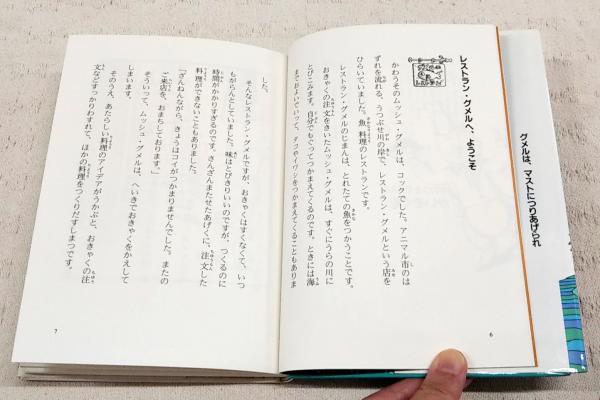 グメルは、マストにつりあげられ
レストラン・グメルへ、ようこそ
かわうそのムッシュ・グメルは、コックでした。アニマル市のは
ずれを流れる、うつぶせ川の岸で、レストラン・グメルという店を
ひらいていました。魚料理のレストランです。
レストラン・グメルのじまんは、とれたての魚をつかうことです。
おきゃくの注文をきいたムッシュ・グメルは、すぐにうらの川に
とびこみます。自分でもぐってつかまえてくるのです。ときには海
までおよいでいって、タコやイワシをつかまえてくることもありま
6
した。
そんなレストラン・グメルですが、おきゃくはすくなくて、いつ
もがらんとしていました。味はとびきりいいのですが、つくるのに
時間がかかりすぎるのです。さんざんまたせたあげくに、注文した
料理ができないこともありました。
「ざんねんながら、きょうはコイがつかまりませんでした。またの
ご来店を、おまちしております。」
そういって、ムッシュ・グメルは、へいきでおきゃくをかえして
しまいます。
そのうえ、あたらしい料理のアイデアがうかぶと、おきゃくの注
文などすっかりわすれて、ほかの料理をつくりだすしまつです。
7